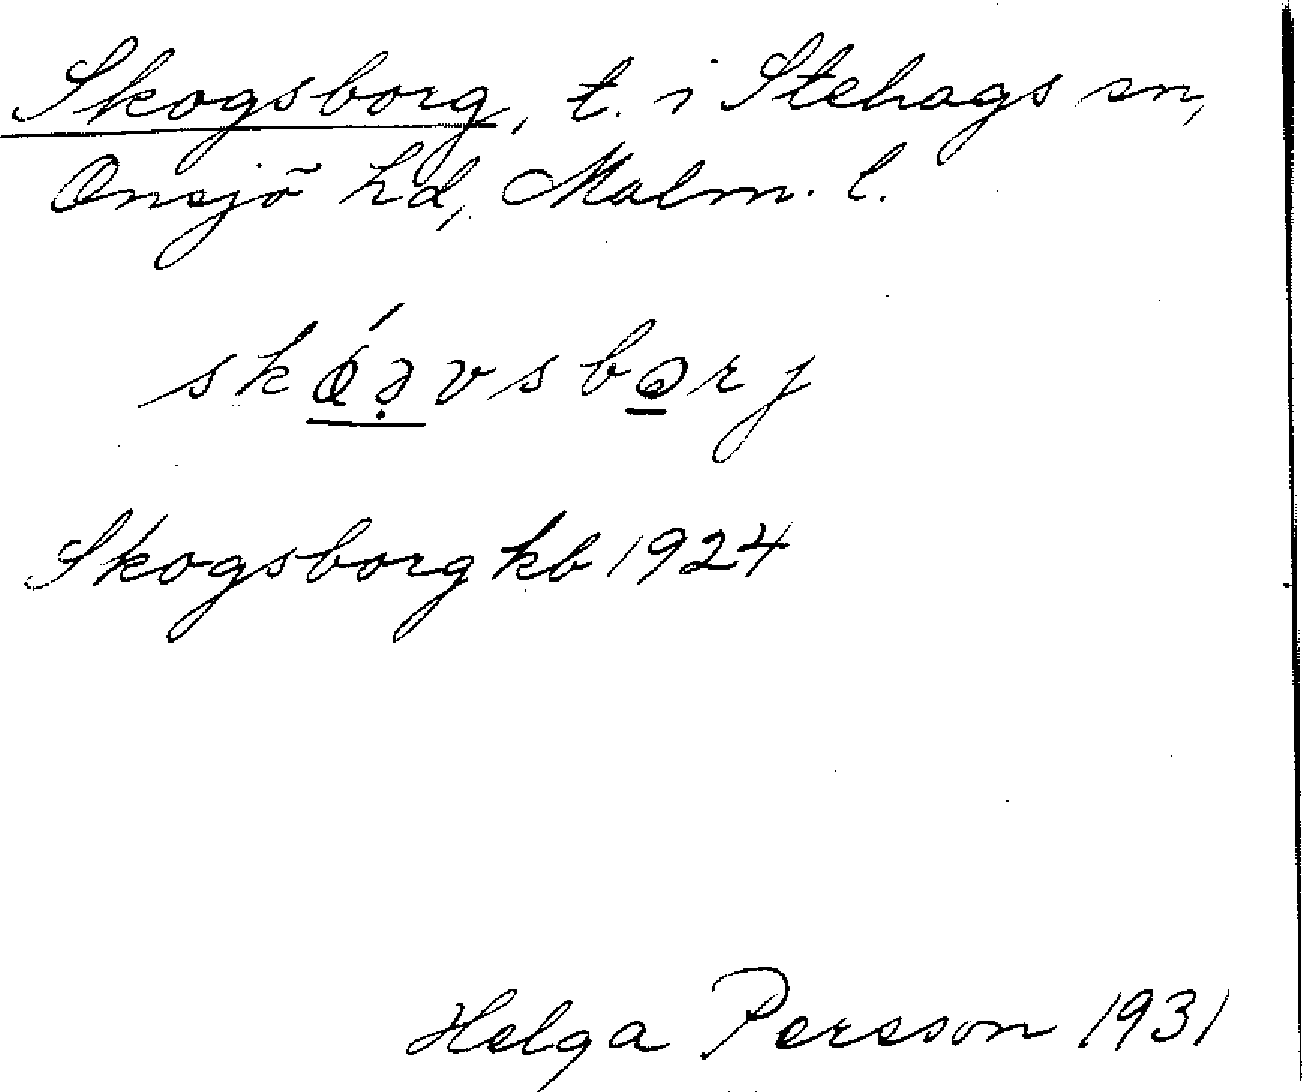 Skogsborg, t. i Stehags sn,
Onsjö hd, Malm. l.
Skogsborg kb 1924
Helga Persson 1931